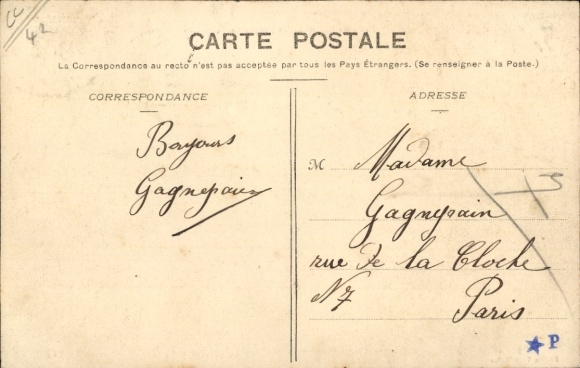 CC
42
CARTE POSTALE
La Correspondance au recto n'est pas acceptée par tous les Pays Étrangers. (Se renseigner à la Poste.)
CORRESPONDANCE
Bonjours
Gagnepain
ADRESSE
M Madame
Gagnepain
rue De la Cloche
N 7
Paris
P